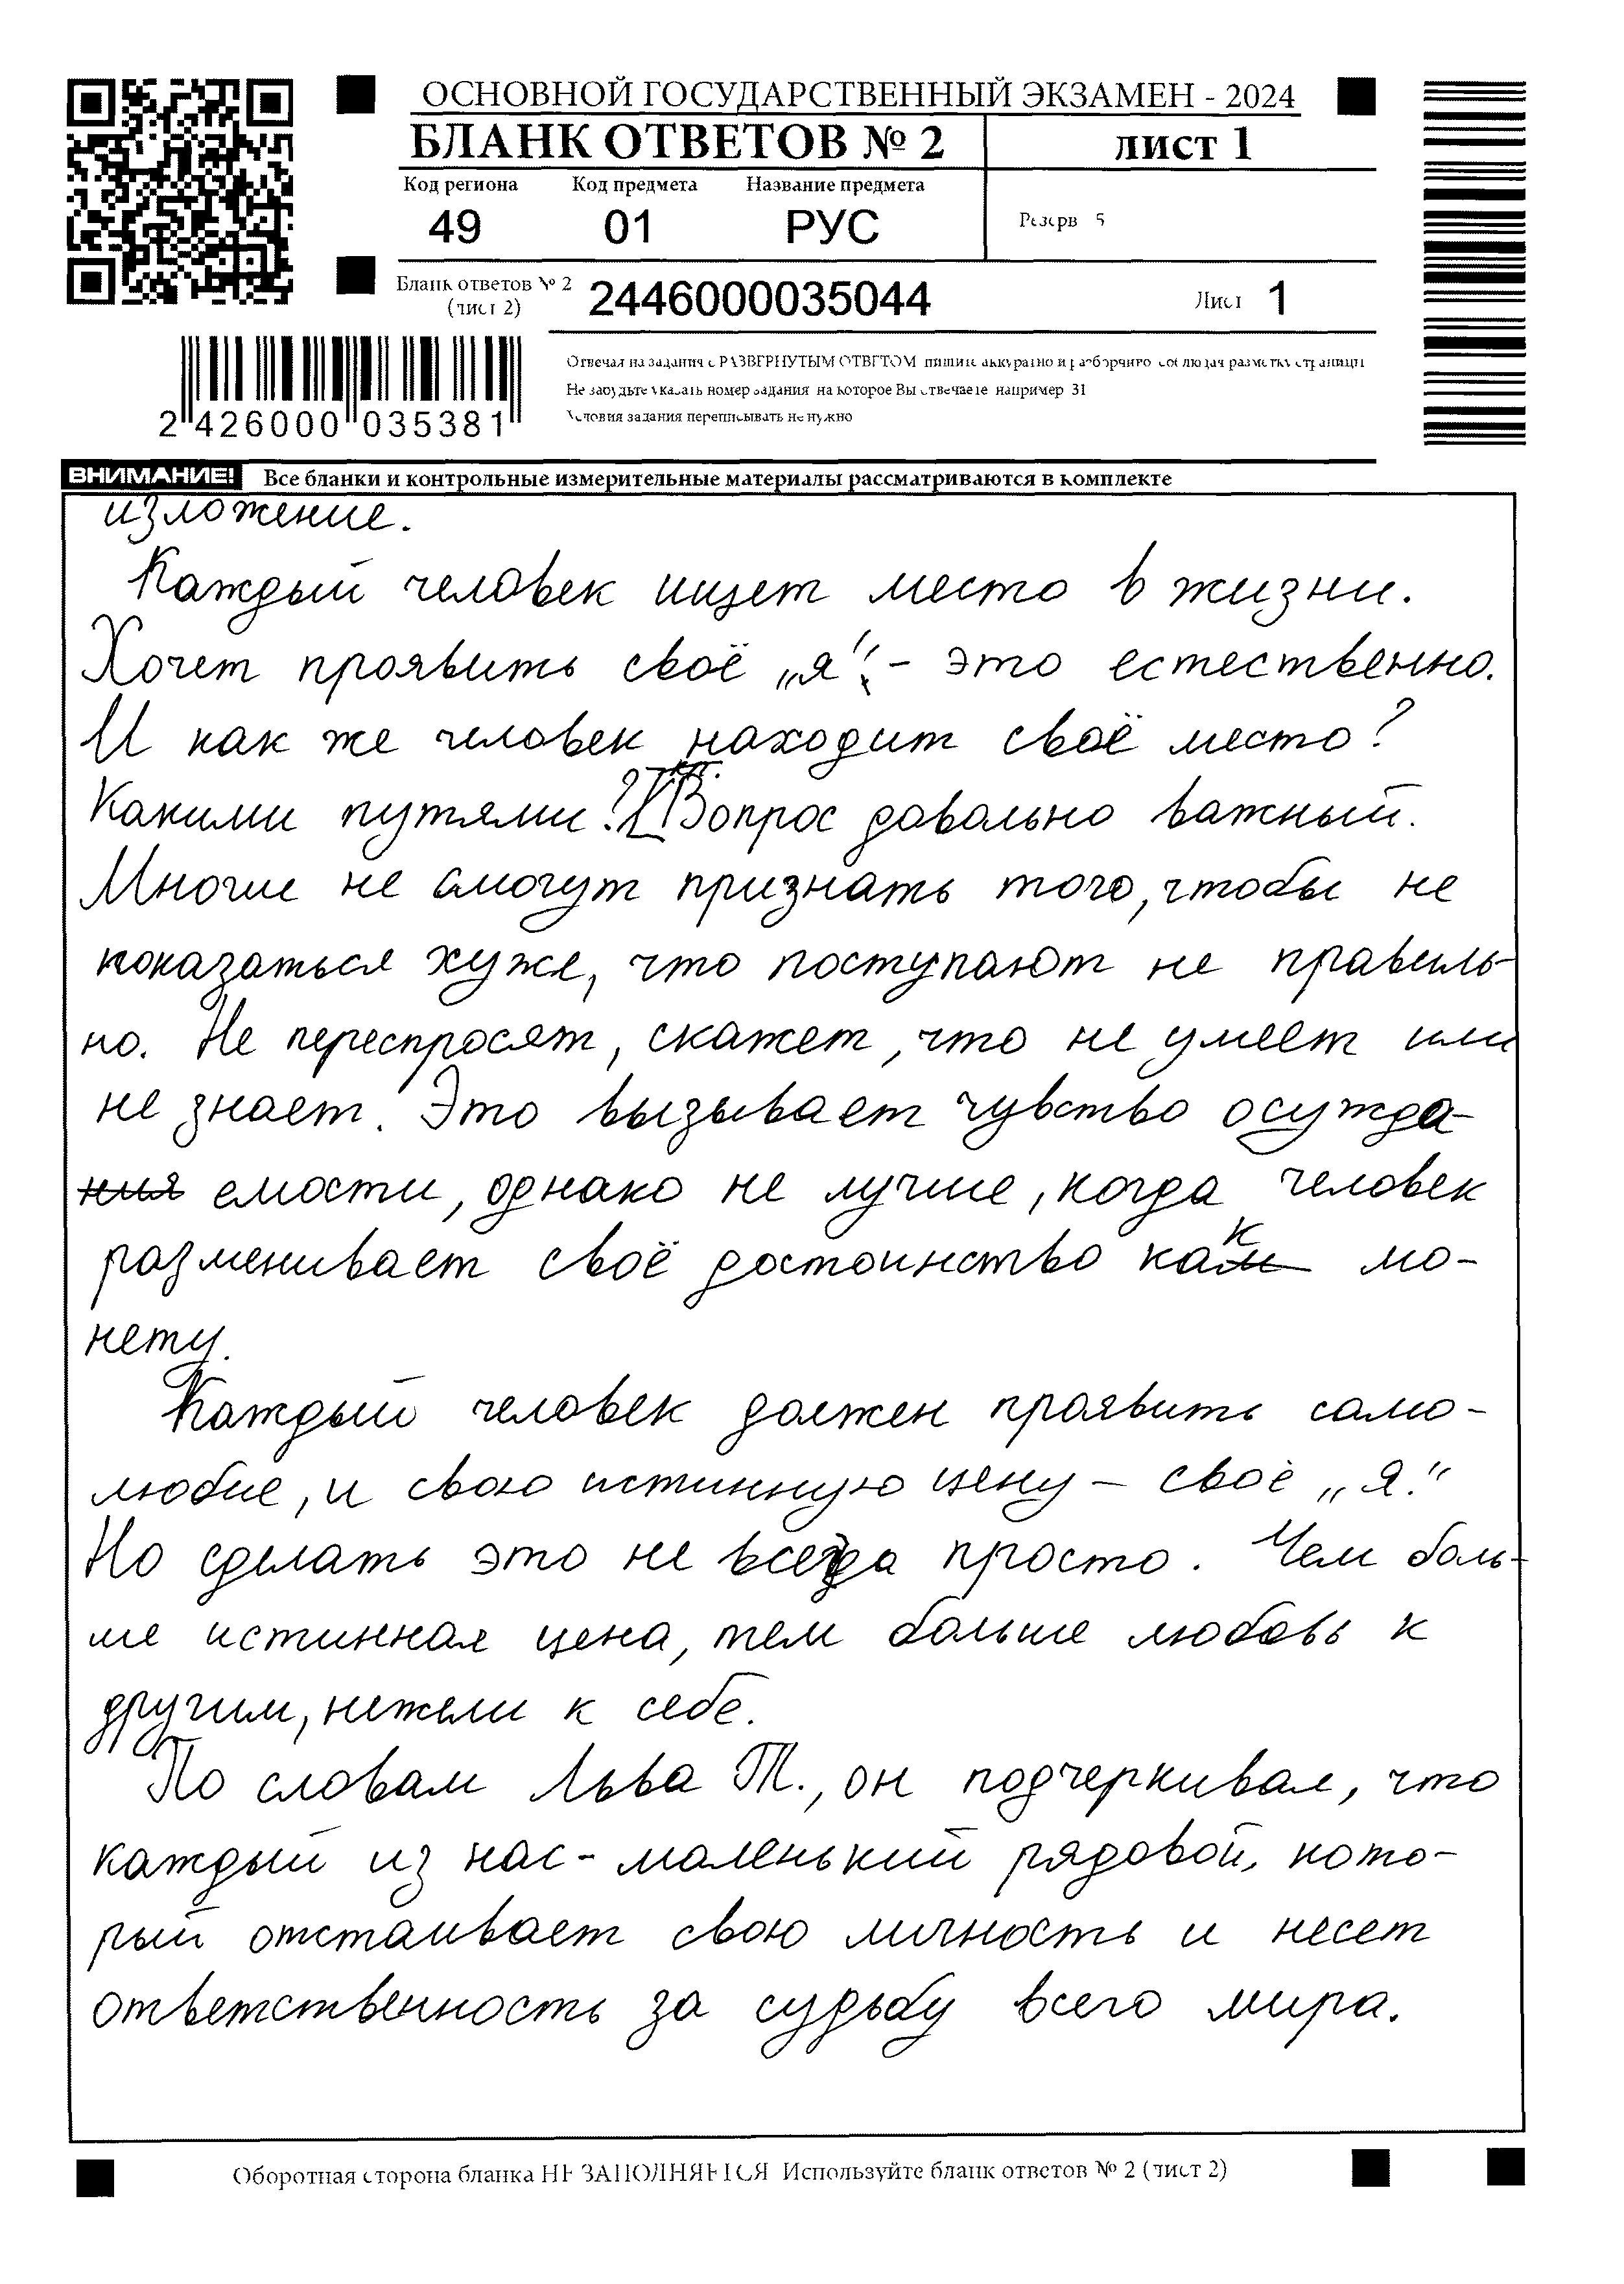 ОСНОВНОЙ ГОСУДАРСТВЕННЫЙ ЭКЗАМЕН - 2024
БЛАНК ОТВЕТОВ № 2
лист 1
Код региона
Код предмета
Название предмета
49
01
РУС
Резерв - 5
Бланк ответов № 2
(лист 2)
2446000035044
Лист 1
2 426000 035381
Отвечая на задания с РАЗВЕРНУТЫМ ОТВЕТОМ пишите аккуратно и разборчиво соблюдая разметку страницы
Не забудьте указать номер задания на которое Вы отвечаете например 31
Условия задания переписывать не нужно
ВНИМАНИЕ! Все бланки и контрольные измерительные материалы рассматриваются в комплекте
изложение.
Каждый человек ищет место в жизни.
Хочет проявить своё „я“ - это естественно.
И как же человек находит своё место?
Какими путями? Вопрос довольно важный.
Многие не смогут признать того, чтобы не
показаться хуже, что поступают не правиль-
но. Не переспросят, скажет, что не умеет или
не знает. Это вызывает чувство осужда-
ния емости, однако не лучше, когда человек
разменивает своё достоинство как мо-
нету.
Каждый человек должен проявить само-
любие, и свою истинную цену – своё „Я.“
Но сделать это не всегда просто. Чем боль-
ше истинная цена, тем больше любовь к
другим, нежели к себе.
По словам Льва Т., он подчеркивал, что
каждый из нас - маленький рядовой, кото-
рый отстаивает свою личность и несет
ответственность за судьбу всего мира.
Оборотная сторона бланка НЕ ЗАПОЛНЯЕТСЯ Используйте бланк ответов № 2 (лист 2)